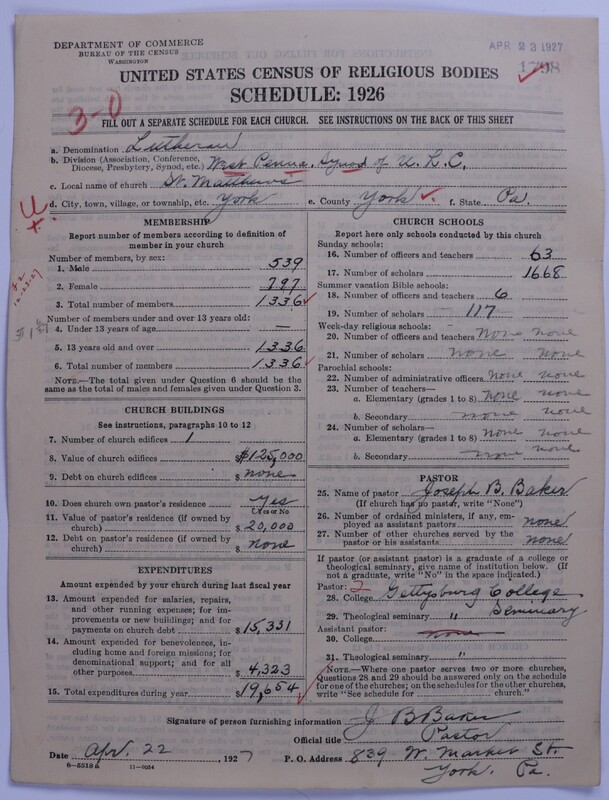 DEPARTMENT OF COMMERCE
BUREAU OF THE CENSUS
WASHINGTON
APR 23 1927
1798
UNITED STATES CENSUS OF RELIGIOUS BODIES
SCHEDULE: 1926
3-0
FILL OUT A SEPARATE SCHEDULE FOR EACH CHURCH. SEE INSTRUCTIONS ON THE BACK OF THIS SHEET
a. Denomination Lutheran
b. Division (Association, Conference, Diocese, Presbytery, Synod, etc.) West Penna. Synod of U. L. C.
c. Local name of church St. Matthews
d. City, town, village, or township, etc. York e. County York f. State Pa.
MEMBERSHIP
Report number of members according to definition of member in your church
Number of members, by sex:
1. Male 539
2. Female 797
3. Total number of members 1336
Number of members under and over 13 years old:
4. Under 13 years of age —
5. 13 years old and over 1336
6. Total number of members 1336
NOTE.—The total given under Question 6 should be the same as the total of males and females given under Question 3.
CHURCH BUILDINGS
See instructions, paragraphs 10 to 12
7. Number of church edifices 1
8. Value of church edifices $125,000
9. Debt on church edifices $ none
10. Does church own pastor's residence Yes
Yes or No
11. Value of pastor's residence (if owned by church) $20,000
12. Debt on pastor's residence (if owned by church) $ none
EXPENDITURES
Amount expended by your church during last fiscal year
13. Amount expended for salaries, repairs, and other running expenses; for improvements or new buildings; and for payments on church debt $15,331
14. Amount expended for benevolences, including home and foreign missions; for denominational support; and for all other purposes $4,323
15. Total expenditures during year $19,654
CHURCH SCHOOLS
Report here only schools conducted by this church
Sunday schools:
16. Number of officers and teachers 63
17. Number of scholars 1668
Summer vacation Bible schools:
18. Number of officers and teachers 6
19. Number of scholars 117
Week-day religious schools:
20. Number of officers and teachers None none
21. Number of scholars none none
Parochial schools:
22. Number of administrative officers none none
23. Number of teachers—
a. Elementary (grades 1 to 8) none none
b. Secondary none none
24. Number of scholars—
a. Elementary (grades 1 to 8) none none
b. Secondary none none
PASTOR
25. Name of pastor Joseph B. Baker
(If church has no pastor, write "None")
26. Number of ordained ministers, if any, employed as assistant pastors none
27. Number of other churches served by the pastor or his assistants none
If pastor (or assistant pastor) is a graduate of a college or theological seminary, give name of institution below. (If not a graduate, write "No" in the space indicated.)
Pastor: 2
28. College Gettysburg College
29. Theological seminary " Seminary
Assistant pastor:
30. College none
31. Theological seminary "
NOTE.—Where one pastor serves two or more churches, Questions 28 and 29 should be answered only on the schedule for one of the churches; on the schedules for the other churches, write "See schedule for church."
Signature of person furnishing information J B Baker
Official title Pastor
Date Apr. 22, 1927 P. O. Address 839 W. Market St.
York. Pa.
6-5518a 11-9034